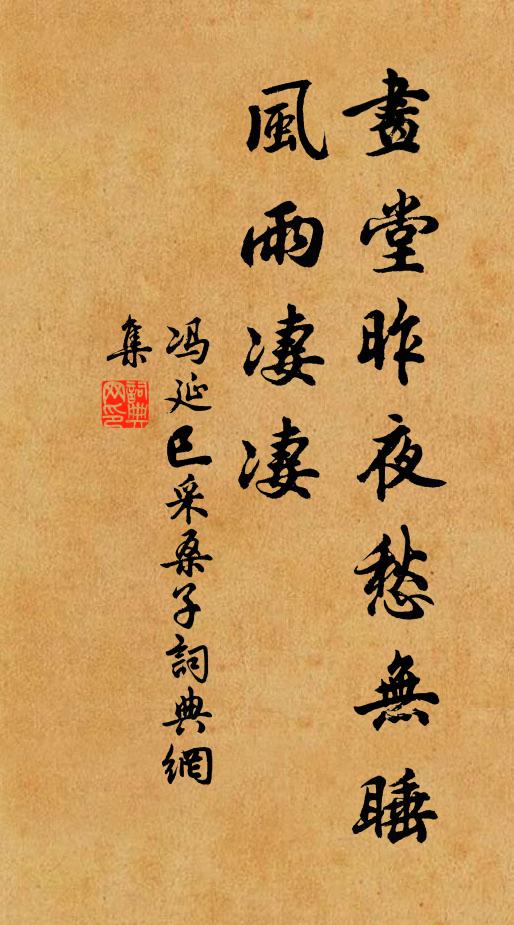 畫堂昨夜愁無睡
風雨淒淒
冯延巳采桑子詞典網
集
詞典網印